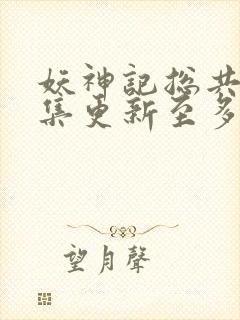 妖神記総共
集更新至多
望月聲